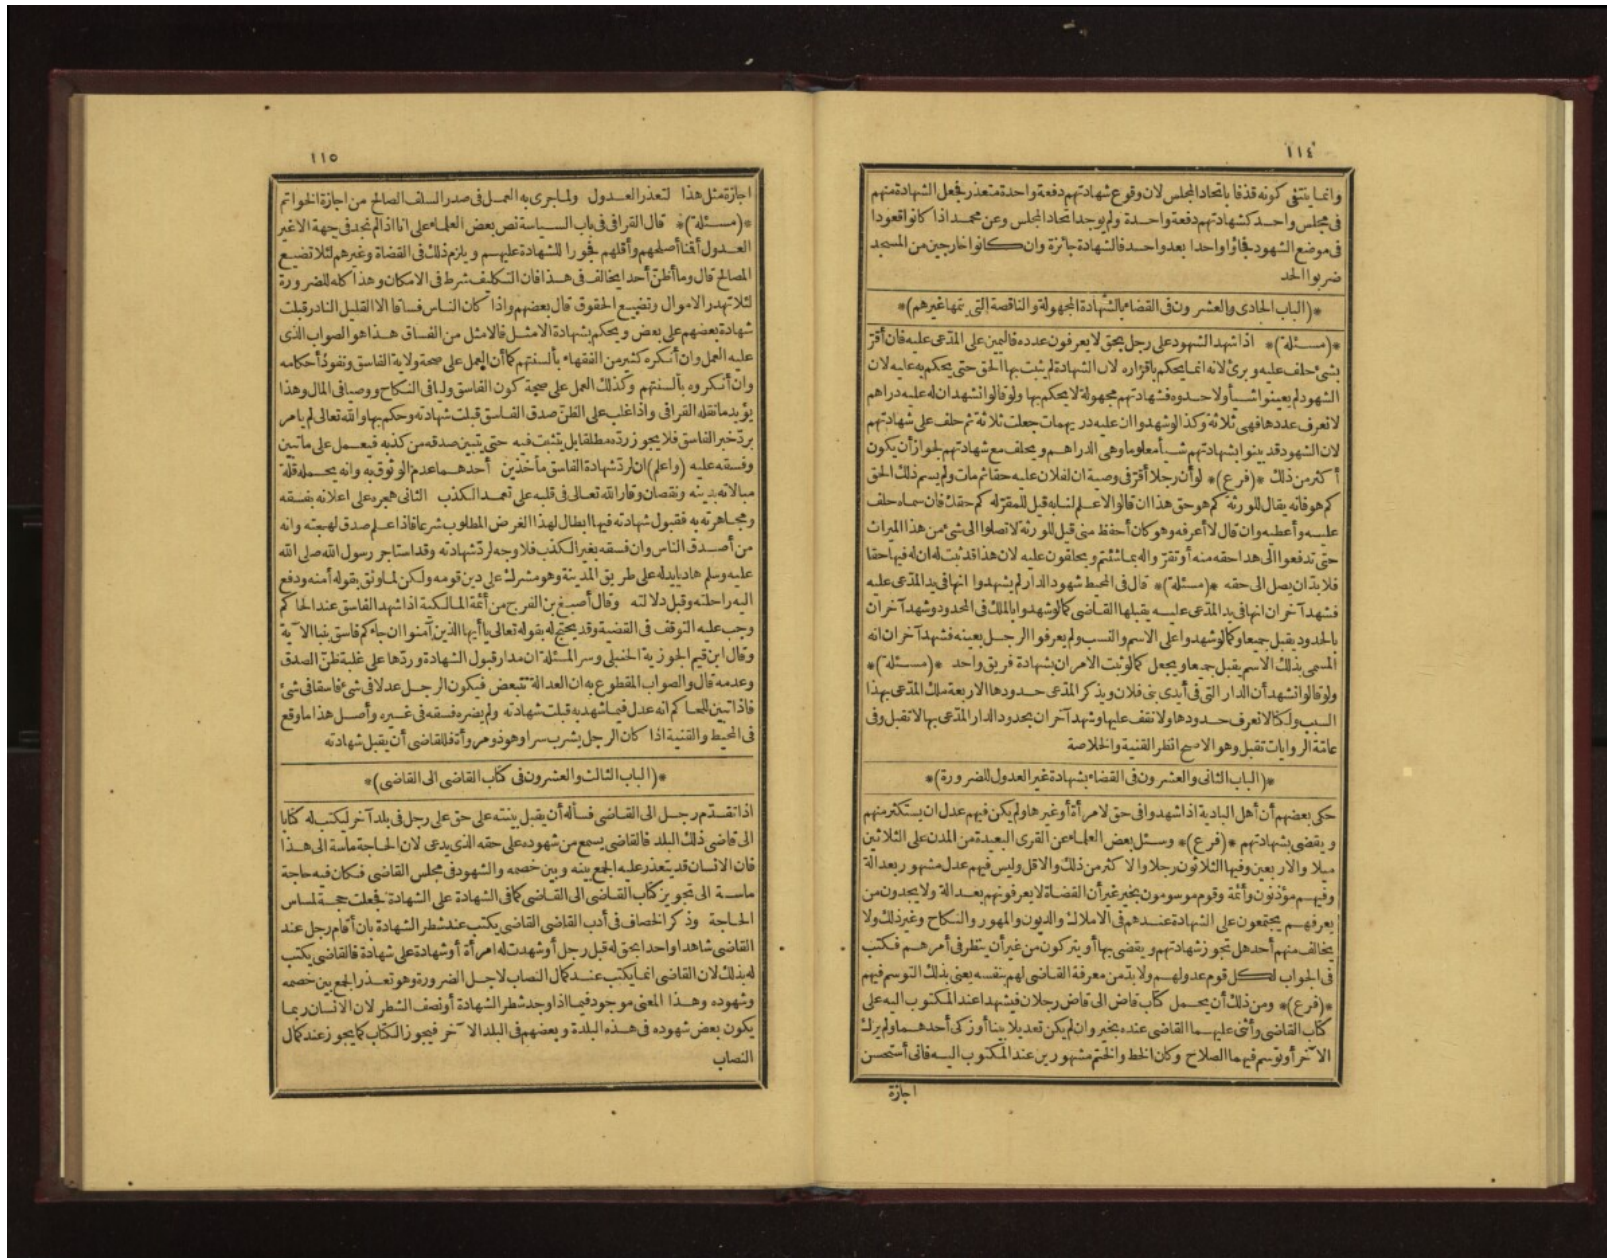 ١١٤
وانما ينتفى كونه قذفا باتحاد المجلس لان وقوع شهادتهم دفعة واحدة متعذر فجعل الشهادة منهم
فى مجلس واحد كشهادتهم دفعة واحدة ولم يوجد اتحاد المجلس وعن محمد اذا كانوا قعودا
فى موضع الشهود فجاؤا واحدا بعد واحد فالشهادة جائزة وان كانوا خارجين من المسجد
ضربوا الحد
*(الباب الحادى والعشرون فى القضاء بالشهادة المجهولة والناقصة التى يتمها غيرهم)*
*(مسئلة)* اذا شهد الشهود على رجل بحق لا يعرفون عدده فاليمين على المدّعى عليه فان أقرّ
بشئ حلف عليه وبرئ لانه انما يحكم باقراره لان الشهادة لم يثبت بها الحق حتى يحكم به عليه لان
الشهود لم يعينوا شيأ ولا حدوه فشهادتهم مجهولة لا يحكم بها ولو قالوا نشهد ان له عليه دراهم
لا نعرف عددها فهى ثلاثة وكذا لو شهدوا ان عليه دريهمات جعلت ثلاثة ثم حلف على شهادتهم
لان الشهود قد بينوا بشهادتهم شيأ معلوما وهى الدراهم ويحلف مع شهادتهم لجواز أن يكون
أكثر من ذلك *(فرع)* لو أن رجلا أقرّ فى وصية ان لفلان عليه حقا ثم مات ولم يسم ذلك الحق
كم هو فانه يقال للورثة كم هو حق هذا ان قالوا لا علم لنا به قيل للمقرّ له كم حقك فان سماه حلف
عليه وأعطيه وان قال لا أعرفه وهو كان أحفظ منى قيل للورثة لا تصلوا الى شئ من هذا الميراث
حتى تدفعوا الى هذا حقه منه أو تقرّوا له بما شئتم ويحلفون عليه لان هذا قد ثبت له ان له فيها حقا
فلا بدّ ان يصل الى حقه *(مسئلة)* قال فى المحيط شهود الدار لم يشهدوا انها فى يد المدّعى عليه
فشهد آخران انها فى يد المدّعى عليه يقبلها القاضى كما لو شهدوا بالملك فى المحدود وشهد آخران
بالحدود يقبل جميعا وكما لو شهدوا على الاسم والنسب ولم يعرفوا الرجل بعينه فشهد آخران انه
المسمى بذلك الاسم يقبل جميعا ويجعل كما لو ثبت الامران بشهادة فريق واحد *(مسئلة)*
ولو قالوا نشهد أن الدار التى فى أيدى بنى فلان ويذكر المدّعى حدودها الاربعة ملك المدّعى بهذا
السبب ولكنا لا نعرف حدودها ولا نقف عليها وشهد آخران بحدود الدار المدّعى بها لا تقبل وفى
عامّة الروايات تقبل وهو الاصح انظر القنية والخلاصة
*(الباب الثانى والعشرون فى القضاء بشهادة غير العدول للضرورة)*
حكى بعضهم أن أهل البادية اذا شهدوا فى حق لامرأة أو غيرها ولم يكن فيهم عدل ان يستكثر منهم
ويقضى بشهادتهم *(فرع)* وسئل بعض العلماء عن القرى البعيدة من المدن على الثلاثين
ميلا والاربعين وفيها الثلاثون رجلا والاكثر من ذلك والاقل وليس فيهم عدل مشهور بعدالة
وفيهم مؤذنون وأئمة وقوم موسومون بخير غير أن القضاة لا يعرفونهم بعدالة ولا يجدون من
يعرفهم يجتمعون على الشهادة عندهم فى الاملاك والديون والمهور والنكاح وغير ذلك ولا
يخالف منهم أحد هل تجوز شهادتهم ويقضى بها أو يتركون من غير أن ينظر فى أمرهم فكتب
فى الجواب لكل قوم عدولهم ولا بدّ من معرفة القاضى لهم بنفسه يعنى بذلك التوسم فيهم
*(فرع)* ومن ذلك أن يحمل كتاب قاض الى قاض رجلان فيشهدا عند المكتوب اليه على
كتاب القاضى وأثنى عليهما القاضى عنده بخير وان لم يكن تعديلا بينا أو زكى أحدهما ولم يزك
الآخر أو توسم فيهما الصلاح وكان الخط والختم مشهورين عند المكتوب اليه فانى أستحسن
اجازة
١١٥
اجازة مثل هذا لتعذر العدول ولما جرى به العمل فى صدر السلف الصالح من اجازة الخواتم
*(مسئلة)* قال القرافى فى باب السياسة نص بعض العلماء على انا اذا لم نجد فى جهة الا غير
العدول أقمنا أصلحهم وأقلهم فجورا للشهادة عليهم ويلزم ذلك فى القضاة وغيرهم لئلا تضيع
المصالح قال وما أظنّ أحدا يخالف فى هذا فان التكليف شرط فى الامكان وهذا كله للضرورة
لئلا تهدر الاموال وتضيع الحقوق قال بعضهم واذا كان الناس فساقا الا القليل النادر قبلت
شهادة بعضهم على بعض ويحكم بشهادة الامثل فالامثل من الفساق هذا هو الصواب الذى
عليه العمل وان أنكره كثير من الفقهاء بألسنتهم كما أن العمل على صحة ولاية الفاسق ونفوذ أحكامه
وان أنكروه بألسنتهم وكذلك العمل على صحة كون الفاسق وليا فى النكاح ووصيا فى المال وهذا
يؤيد ما نقله القرافى واذا غلب على الظنّ صدق الفاسق قبلت شهادته وحكم بها والله تعالى لم يامر
بردّ خبر الفاسق فلا يجوز ردّه مطلقا بل يتثبت فيه حتى يتبين صدقه من كذبه فيعمل على ما تبين
وفسقه عليه (واعلم) ان لردّ شهادة الفاسق مأخذين أحدهما عدم الوثوق به وانه يحمله قلة
مبالاته بدينه ونقصان وقار الله تعالى فى قلبه على تعمد الكذب الثانى هجره على اعلانه بفسقه
ومجاهرته به فقبول شهادته فيها ابطال لهذا الغرض المطلوب شرعا فاذا علم صدق لهجته وانه
من أصدق الناس وان فسقه بغير الكذب فلا وجه لردّ شهادته وقد استاجر رسول الله صلى الله
عليه وسلم هاديا يدله على طريق المدينة وهو مشرك على دين قومه ولكن لما وثق بقوله أمنه ودفع
اليه راحلته وقبل دلالته وقال أصبغ بن الفرج من أئمة المالكية اذا شهد الفاسق عند الحاكم
وجب عليه التوقف فى القضية وقد يحتج له بقوله تعالى يا أيها الذين آمنوا ان جاءكم فاسق بنبا الآية
وقال ابن قيم الجوزية الحنبلى وسر المسئلة ان مدار قبول الشهادة وردّها على غلبة ظنّ الصدق
وعدمه قال والصواب المقطوع به ان العدالة تتبعض فيكون الرجل عدلا فى شئ فاسقا فى شئ
فاذا تبين للحاكم انه عدل فيما شهد به قبلت شهادته ولم يضره فسقه فى غيره وأصل هذا ما وقع
فى المحيط والقنية اذا كان الرجل يشرب سرا وهو ذو مروأة فللقاضى أن يقبل شهادته
*(الباب الثالث والعشرون فى كتاب القاضى الى القاضى)*
اذا تقدّم رجل الى القاضى فسأله أن يقبل بينته على حق على رجل فى بلد آخر ليكتب له كتابا
الى قاضى ذلك البلد فالقاضى يسمع من شهوده على حقه الذى يدعى لان الحاجة ماسة الى هذا
فان الانسان قد يتعذر عليه الجمع بينه وبين خصمه والشهود فى مجلس القاضى فكان فيه حاجة
ماسة الى تجويز كتاب القاضى الى القاضى كما فى الشهادة على الشهادة فجعلت حجة لمساس
الحاجة وذكر الخصاف فى أدب القاضى القاضى يكتب عند شطر الشهادة بان أقام رجل عند
القاضى شاهدا واحدا بحق له قبل رجل أو شهدت له امرأة أو شهادة على شهادة فالقاضى يكتب
له بذلك لان القاضى انما يكتب عند كمال النصاب لاجل الضرورة وهو تعذر الجمع بين خصمه
وشهوده وهذا المعنى موجود فيما اذا وجد شطر الشهادة أو نصف الشطر لان الانسان ربما
يكون بعض شهوده فى هذه البلدة وبعضهم فى البلد الآخر فيجوز الكتاب كما يجوز عند كمال
النصاب